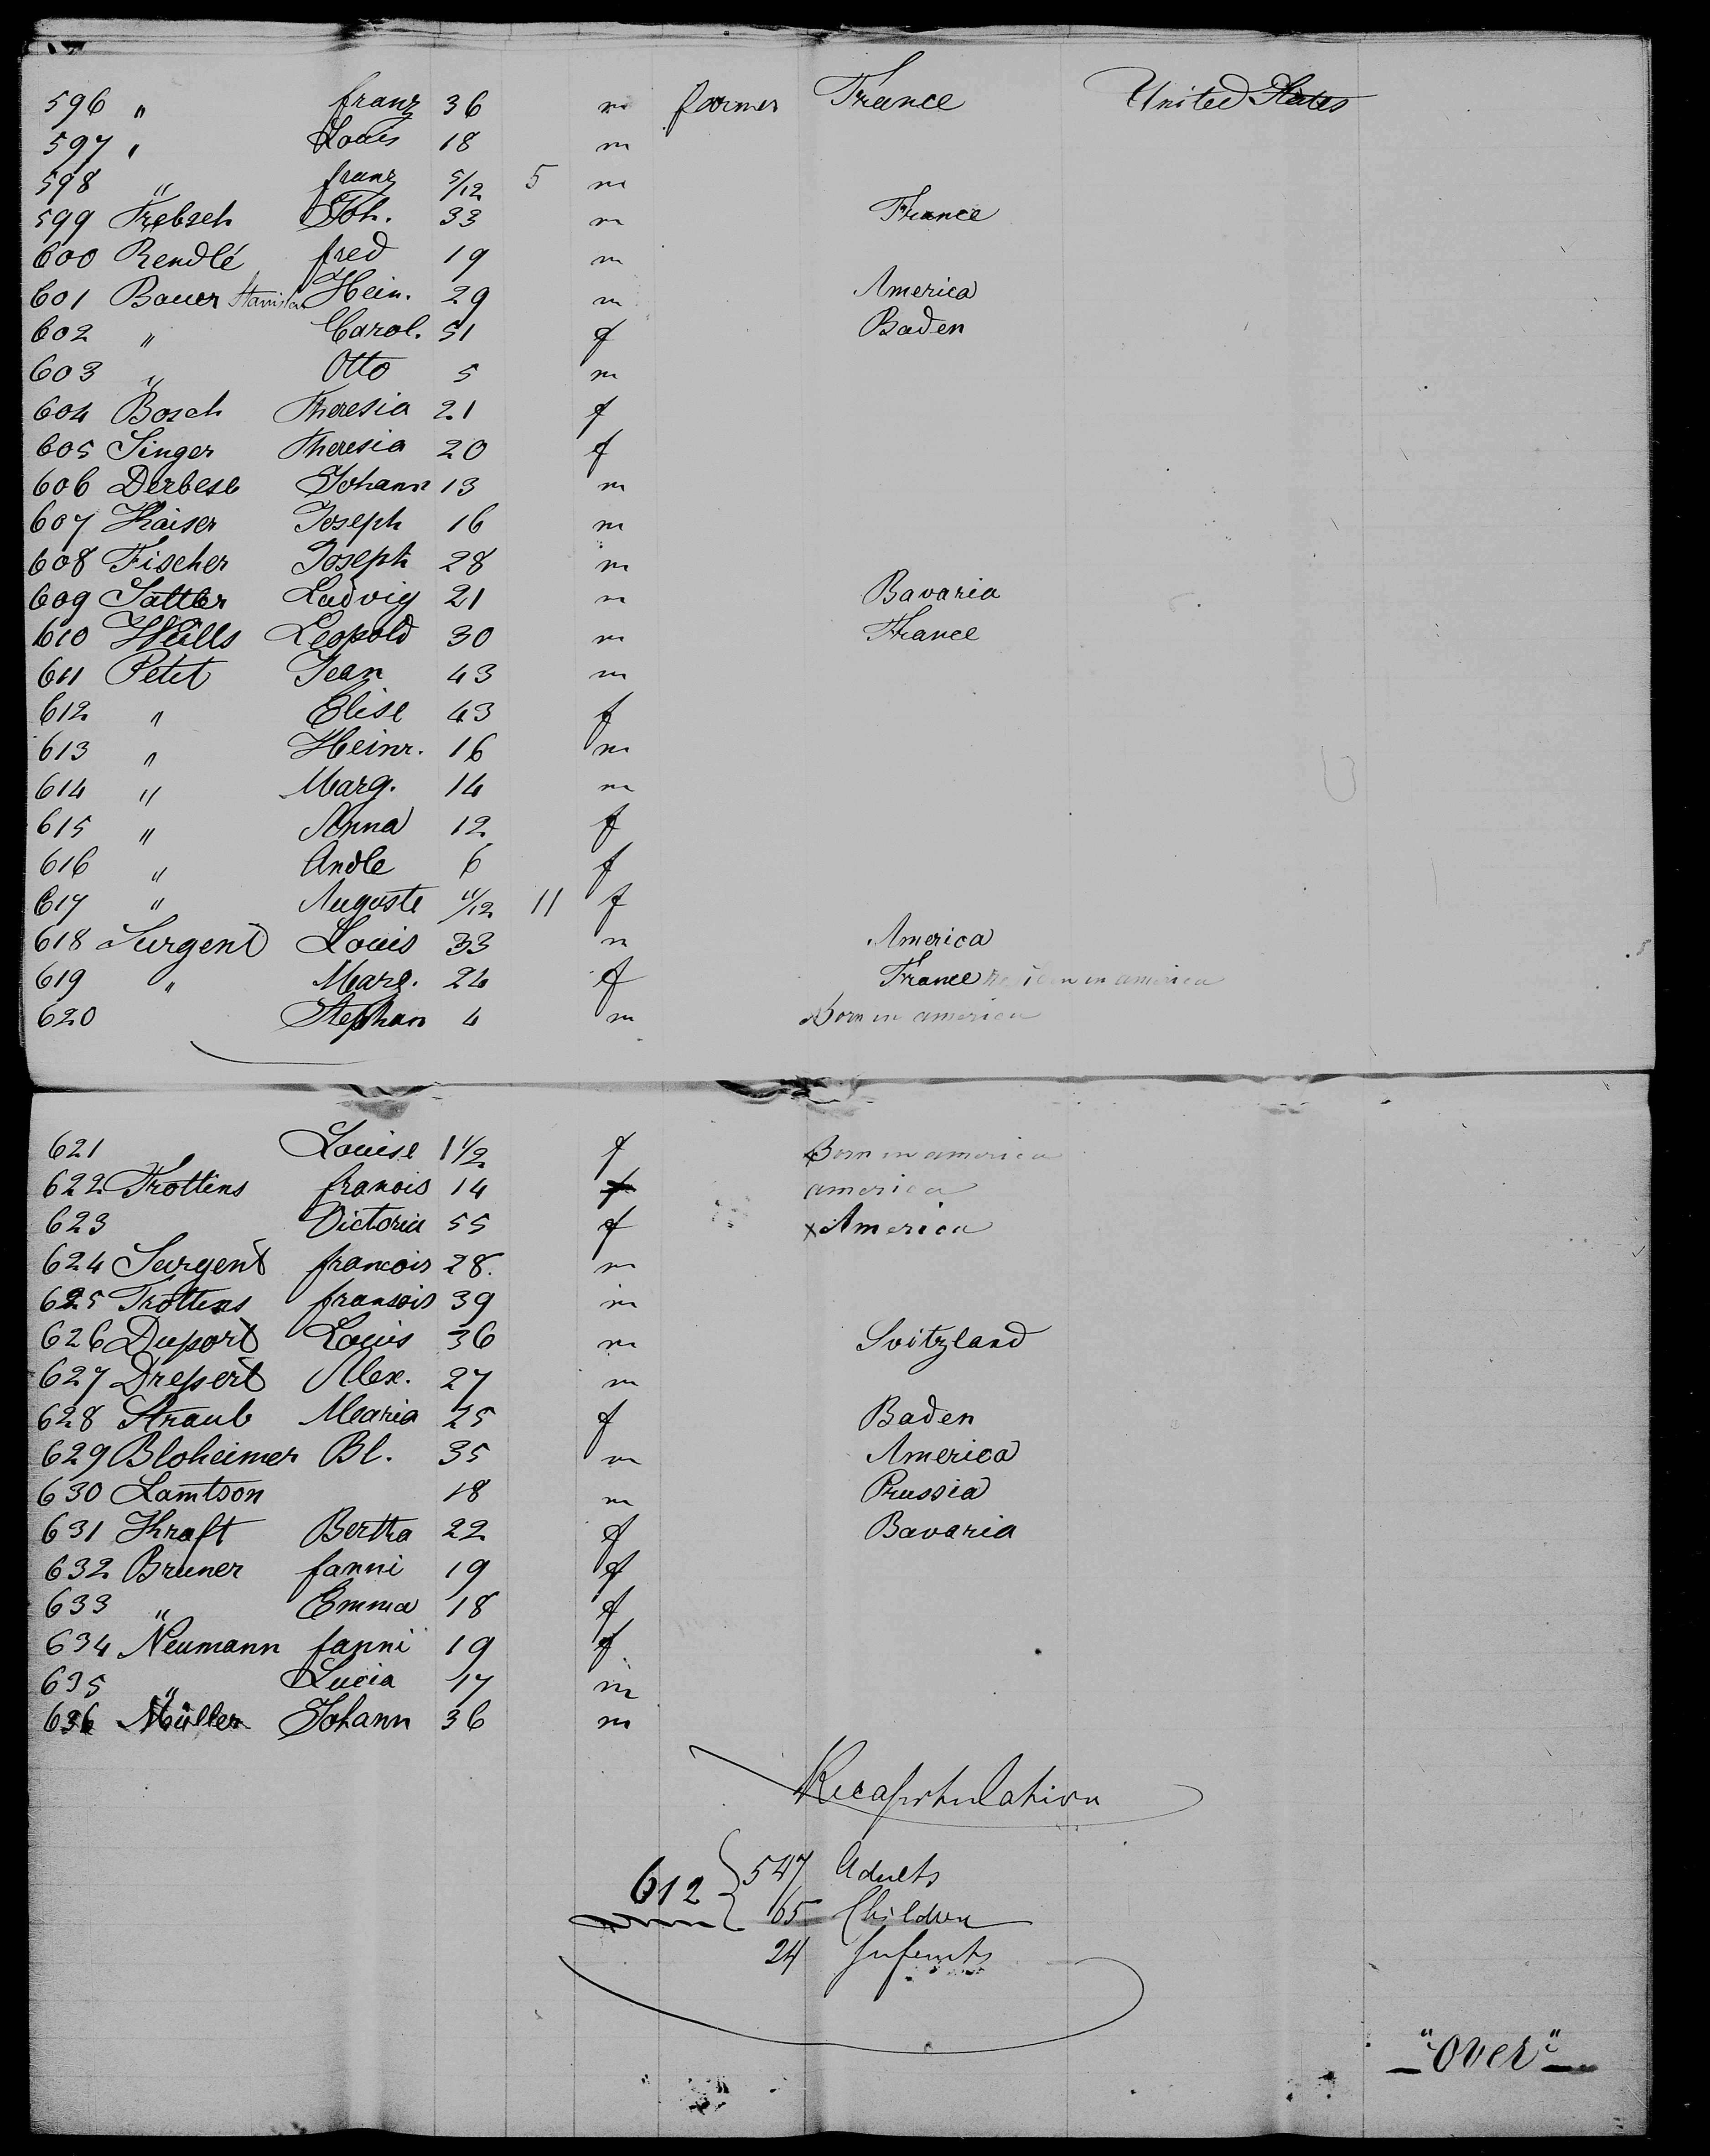 596 " franz 36 m farmer France United States
597 " Louis 18 m
598 " franz 5/12 5 m
599 Trebsch Joh. 33 m France
600 Rendlé fred 19 m
601 Bauer Hein. 29 m America
602 " Carol. 51 f Baden
603 " Otto 5 m
604 Bosch Theresia 21 f
605 Singer Theresia 20 f
606 Derbese Johann 13 m
607 Kaiser Joseph 16 m
608 Fischer Joseph 28 m
609 Sattler Ludvig 21 m Bavaria
610 Wülls Leopold 30 m France
611 Petit Jean 43 m
612 " Elise 43 f
613 " Heinr. 16 m
614 " Marg. 14 m
615 " Anna 12 f
616 " Andle 6 f
617 " Auguste 11/12 11 f
618 Surgent Louis 33 m America
619 " Marg. 24 f France in america
620 Stephan 4 m Born in america
621 Louise 1 1/2 f Born in america
622 Trottins franois 14 f america
623 Victoria 55 f x America
624 Surgent francois 28. m
625 Trottins fransois 39 m
626 Duport Louis 36 m Svitzland
627 Drepert Alex. 27 m
628 Straub Maria 25 f Baden
629 Bloheimer Bl. 35 m America
630 Lamtson 18 m Prussia
631 Kraft Bertha 22 f Bavaria
632 Bruner fanni 19 f
633 " Emma 18 f
634 Neumann fanni 19 f
635 " Lucia 17 m
636 Müller Johann 36 m
Recapitulation
612 { 547 Adults
65 Children
24 Infants
"over"